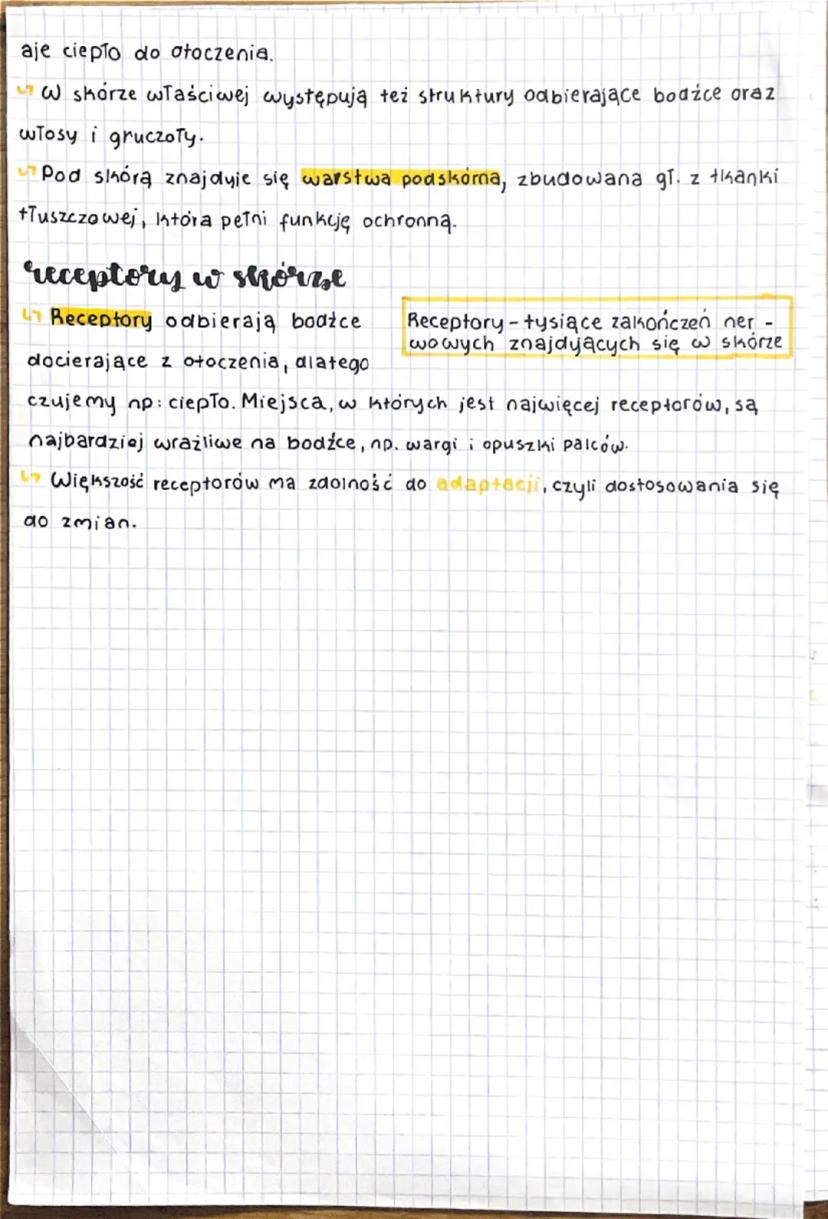 aje ciepło do otoczenia.
↳ W skórze właściwej występują też struktury odbierające bodźce oraz
włosy i gruczoły.
↳ Pod skórą znajduje się warstwa podskórna, zbudowana gł. z tkanki
tłuszczowej, która pełni funkcję ochronną.
receptory w skórze
↳ Receptory odbierają bodźce
docierające z otoczenia, dlatego
Receptory - tysiące zakończeń ner -
wowych znajdujących się w skórze
czujemy np: ciepło. Miejsca, w których jest najwięcej receptorów, są
najbardziej wrażliwe na bodźce, np. wargi i opuszki palców.
↳ Większość receptorów ma zdolność do adaptacji, czyli dostosowania się
do zmian.